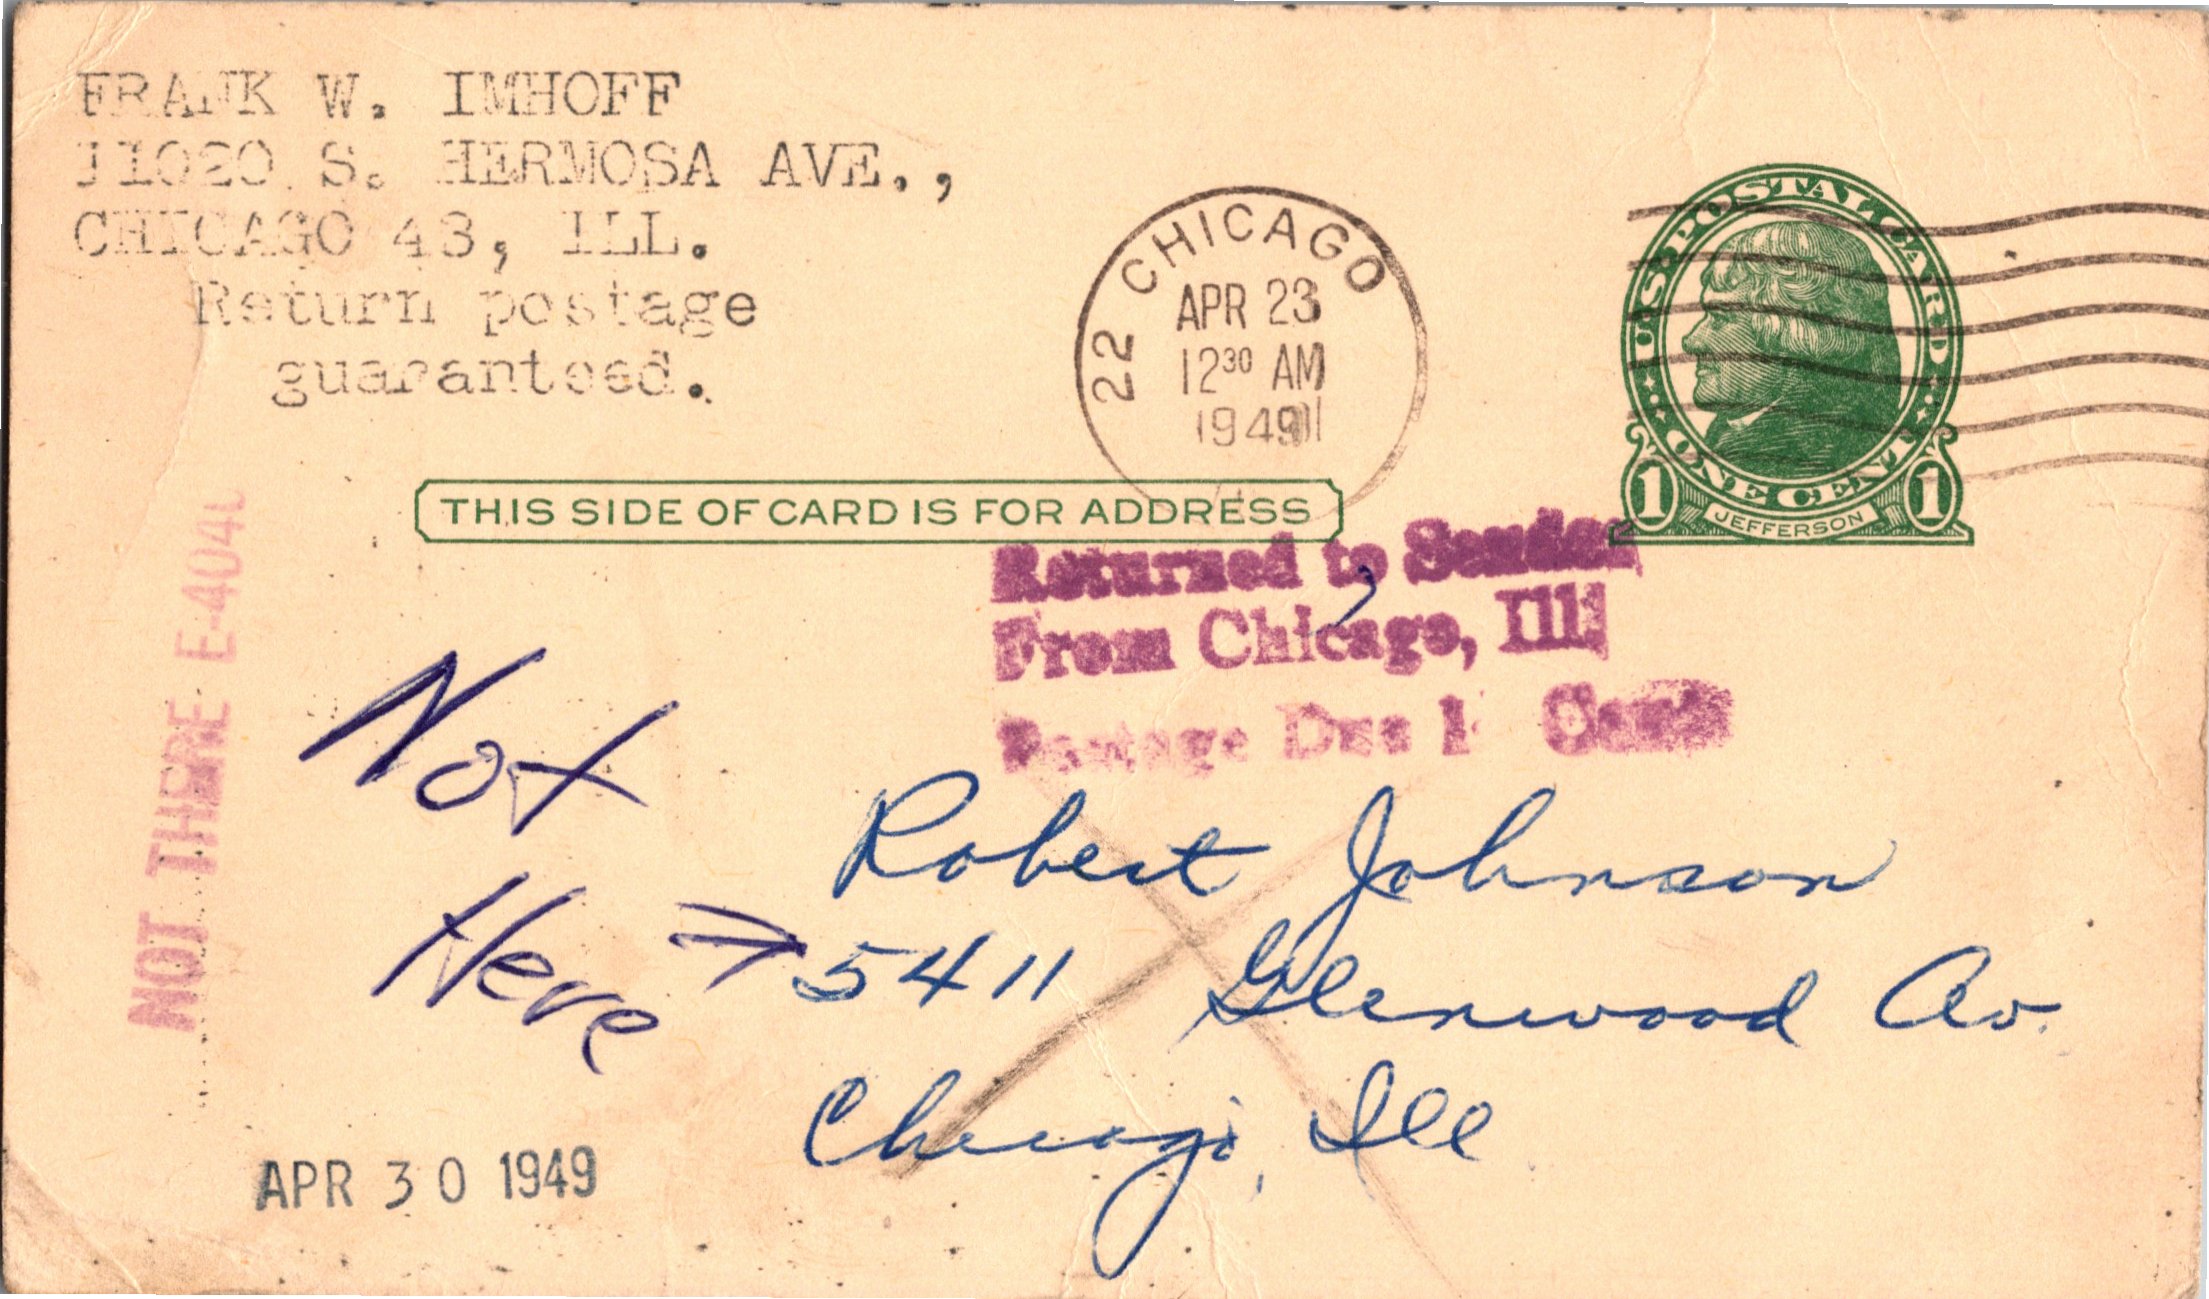 FRANK W. IMHOFF
11020 S. HERMOSA AVE.,
CHICAGO 43, ILL.
Return postage
guaranteed.
22 CHICAGO
APR 23
12 30 AM
1949
U.S. POSTAL CARD
ONE CENT
1 JEFFERSON 1
THIS SIDE OF CARD IS FOR ADDRESS
Returned to Sender
From Chicago, Ill.
Postage Due 1 Cent
NOT THERE E-404
Not
Here →
Robert Johnson
5411 Glenwood Av.
Chicago, Ill
APR 30 1949